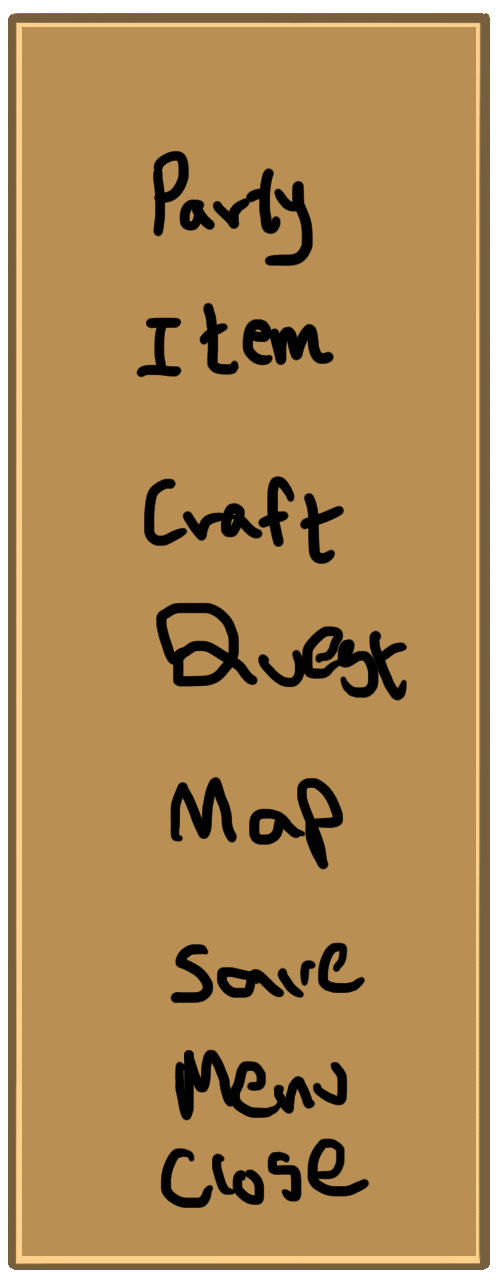 Party
Item
Craft
Quest
Map
Save
Menu
Close